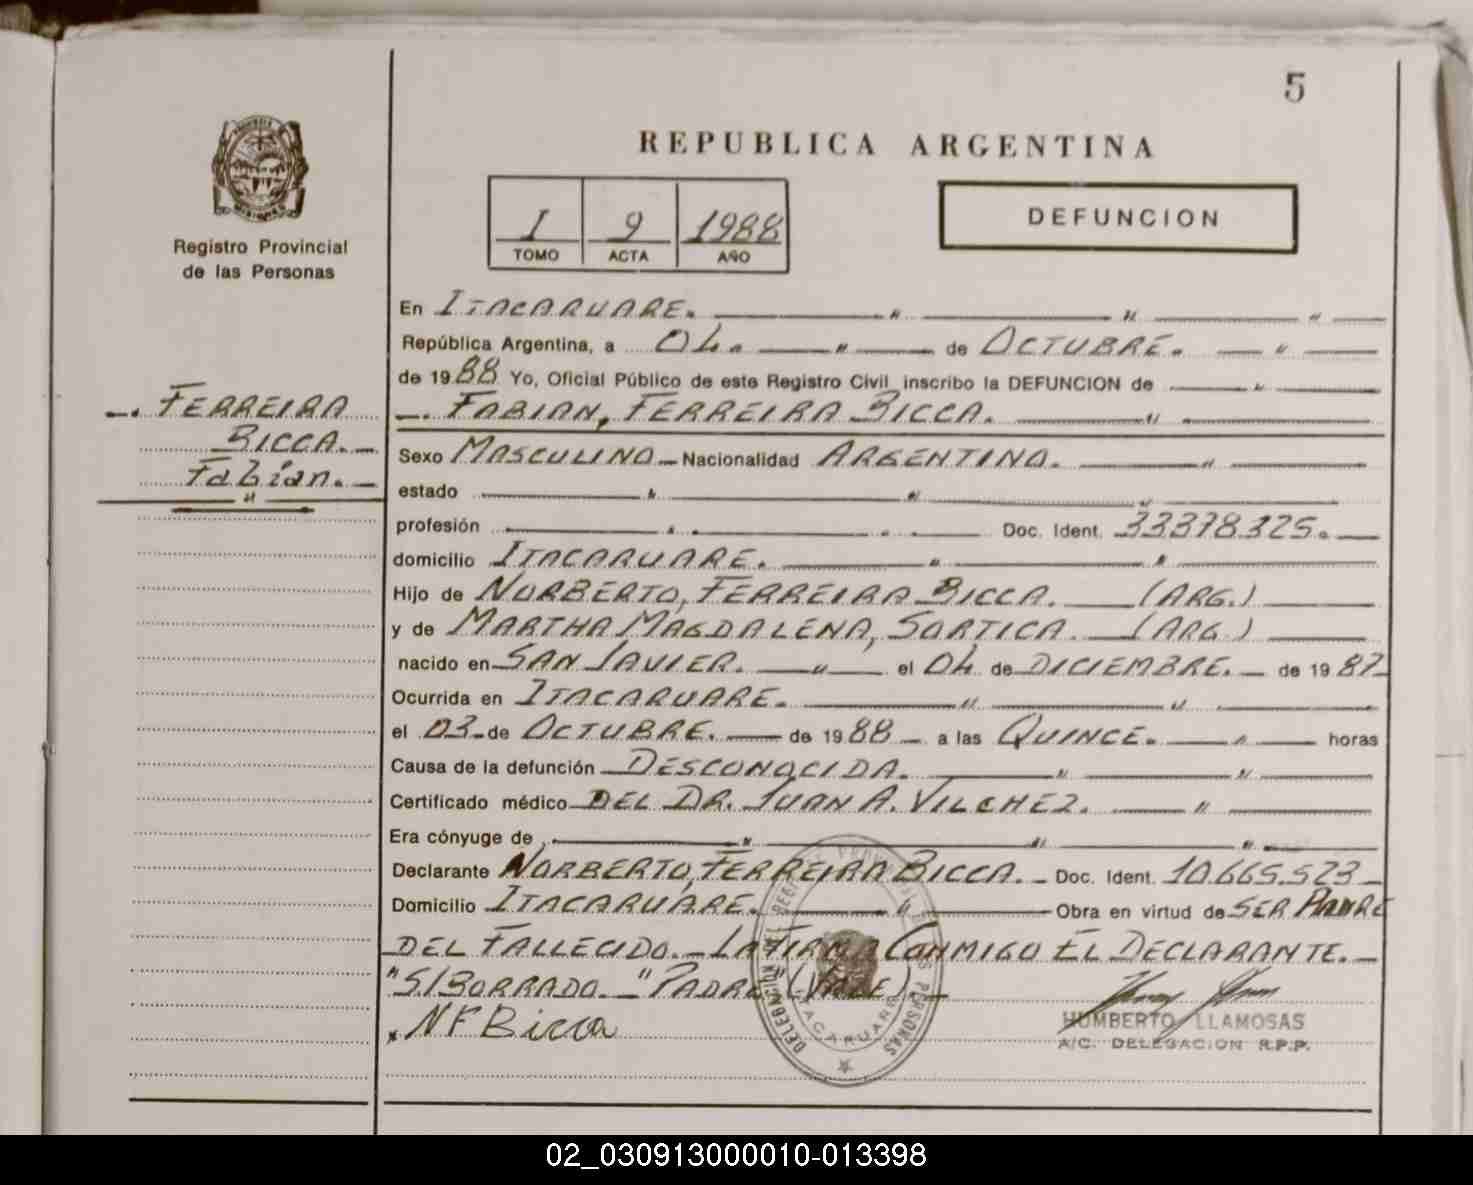 5
REPUBLICA ARGENTINA
I 9 1988
TOMO ACTA AÑO
DEFUNCION
Registro Provincial
de las Personas
FERREIRA
BICCA.
Fabian.
En ITACARUARE.
República Argentina, a 04. de OCTUBRE.
de 1988 Yo, Oficial Público de este Registro Civil inscribo la DEFUNCION de
FABIAN, FERREIRA BICCA.
Sexo MASCULINO Nacionalidad ARGENTINO.
estado
profesión Doc. Ident. 33.378.325.
domicilio ITACARUARE.
Hijo de NORBERTO, FERREIRA BICCA. (ARG.)
y de MARTHA MAGDALENA, SORTICA. (ARG.)
nacido en SAN JAVIER. el 04 de DICIEMBRE. de 1987
Ocurrida en ITACARUARE.
el 03 de OCTUBRE. de 1988 a las QUINCE. horas
Causa de la defunción DESCONOCIDA.
Certificado médico DEL DR. JUAN A. VILCHEZ.
Era cónyuge de
Declarante NORBERTO, FERREIRA BICCA. Doc. Ident. 10.665.523
Domicilio ITACARUARE. Obra en virtud de SER PADRE
DEL FALLECIDO. LA FIRMA CONMIGO EL DECLARANTE.
"S/BORRADO. "PADRE" (VALE).
N F Bicca
HUMBERTO LLAMOSAS
A/C. DELEGACION R.P.P.
ITACARUARE
02_030913000010-013398